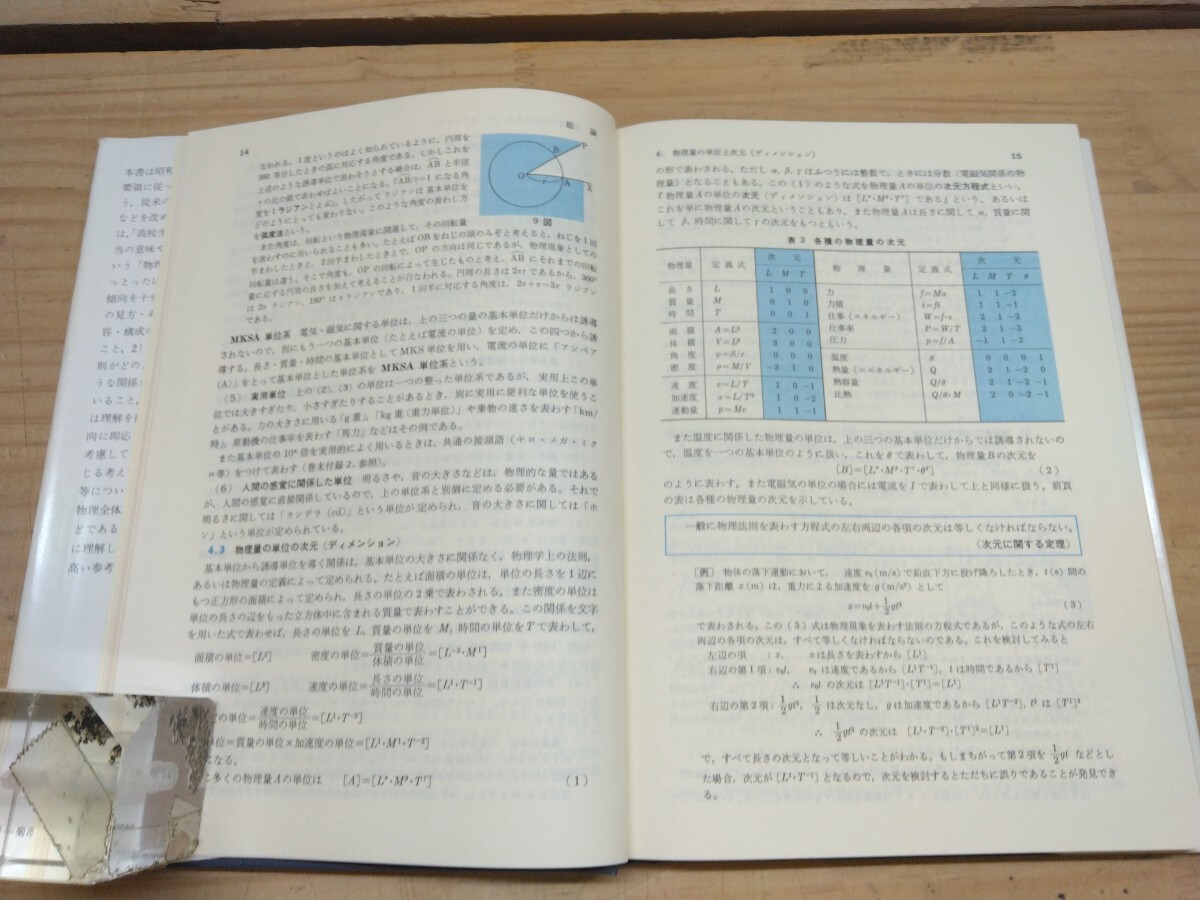 本書は昭和
要領に従っ
う、従来の
などを改め
は、「高校生
当の意味や
いう「物理
っとったに
傾向を十分
の見方・4
容・構成の
こと、2)
則がどの
うな関係に
いること。
は理解を
向に即応
考慮して
じる考え
等につい
物理全体
どである
に理解し
高い参考
菊池
14
総論
なわれる。1度というのはよく知られているように、円周を
360等分したときの弧に対応する角度である。しかしこれを
上述のような誘導単位で表わそうとする場合は、ABと半径
rの比の値で表わせばよいことになる。『AB/r=1になる角
度を1ラジアンとよぶ。したがってラジアンは基本単位を
どのようにとっても変わらない。このような角度の表わし方
を弧度法という。
B
P
O
A
X
9図
また角度は、回転という物理現象に関連して、その回転量
を表わすのに用いられることも多い。たとえばOBをねじの頭のみぞと考えると、ねじを1回
半まわしたときと、2回半まわしたときとで、OPの方向は同じであるが、物理現象としての
回転量は違う。そこで角度も、OPの回転によって生じたものと考え、ABにそれまでの回転
量に応ずる円周の長さを加えて考えることが行なわれる。円周の長さは2πrであるから、360°
は2πラジアン、180°はπラジアンであり、1回半に対応する角度は、2π+π=3πラジアン
である。
MKSA 単位系 電気・磁気に関する単位は、上の三つの量の基本単位だけからは誘導
されないので、別にもう一つの基本単位(たとえば電流の単位)を定め、この四つから誘
導する。長さ・質量・時間の基本単位としてMKS単位を用い、電流の単位に『アンペア
(A)』をとって基本単位とした単位系をMKSA 単位系という。
(5) 実用単位 上の(2)、(3)の単位は一つの整った単位系であるが、実用上この単
位では大きすぎたり、小さすぎたりすることがあるとき、別に実用に便利な単位を使うこ
とがある。力の大きさに用いる「g重」、「kg重(重力単位)」や乗物の速さを表わす「km/
時」、原動機の仕事率を表わす「馬力」などはその例である。
また基本単位の10ⁿ倍を実用的によく用いるときは、共通の接頭語(キロ・メガ・ミク
ロ等)をつけて表わす(巻末付録2. 参照)。
(6) 人間の感覚に関係した単位 明るさや、音の大きさなどは、物理的な量ではある
が、人間の感覚に直接関係しているので、上の単位系と別個に定める必要がある。それで
明るさに関しては「カンデラ(cd)」という単位が定められ、音の大きさに関しては「ホ
ン」という単位が定められている。
4.3 物理量の単位の次元(ディメンション)
基本単位から誘導単位を導く関係は、基本単位の大きさに関係なく、物理学上の法則、
あるいは物理量の定義によって定められる。たとえば面積の単位は、単位の長さを1辺に
もつ正方形の面積によって定められ、長さの単位の2乗で表わされる。また密度の単位は
単位の長さの辺をもった立方体中に含まれる質量で表わすことができる。この関係を文字
を用いた式で表わせば、長さの単位をL、質量の単位をM、時間の単位をTで表わして、
面積の単位=[L²] 密度の単位=質量の単位/体積の単位=[L⁻³・M¹]
体積の単位=[L³] 速度の単位=長さの単位/時間の単位=[L¹・T⁻¹]
の単位=速度の単位/時間の単位=[L¹・T⁻²]
単位=質量の単位×加速度の単位=[L¹・M¹・T⁻²]
なる。
に多くの物理量Aの単位は [A]=[Lᵅ・Mᵝ・Tᵞ] (1)
4. 物理量の単位と次元(ディメンション)
15
の形で表わされる。ただしα、β、γはふつうには整数で、ときには分数(電磁気関係の物
理量)となることもある。この(1)のような式を物理量Aの単位の次元方程式といい、
『物理量Aの単位の次元(ディメンション)は[Lᵅ・Mᵝ・Tᵞ]である』という。あるいは
これを単に物理量Aの次元ということもあり、また物理量Aは長さに関してα、質量に関
してβ、時間に関してγの次元をもつともいう。
表3 各種の物理量の次元
物理量 定義式 次元 L M T 物理量 定義式 次元 L M T θ
長さ L 1 0 0
質量 M 0 1 0
時間 T 0 0 1
面積 A=L² 2 0 0
体積 V=L³ 3 0 0
角度 φ=S/r 0 0 0
密度 ρ=M/V −3 1 0
速度 v=L/T 1 0 −1
加速度 a=L/T² 1 0 −2
運動量 p=Mv 1 1 −1
力 f=Ma 1 1 −2
力積 i=ft 1 1 −1
仕事(=エネルギー) W=f・s 2 1 −2
仕事率 P=W/T 2 1 −3
圧力 p=f/A −1 1 −2
温度 θ 0 0 0 1
熱量(=エネルギー) Q 2 1 −2 0
熱容量 Q/θ 2 1 −2 −1
比熱 Q/θ・M 2 0 −2 −1
また温度に関係した物理量の単位は、上の三つの基本単位だけからでは誘導されないの
で、温度を一つの基本単位のように扱い、これをθで表わして、物理量Bの次元を
[B]=[Lᵅ・Mᵝ・Tᵞ・θᵟ] (2)
のように表わす。また電磁気の単位の場合には電流をIで表わして上と同様に扱う。前頁
の表は各種の物理量の次元を示している。
一般に物理法則を表わす方程式の左右両辺の各項の次元は等しくなければならない。
(次元に関する定理)
[例] 物体の落下運動において、 速度v₀(m/s)で鉛直下方に投げ降ろしたとき、t(s)間の
落下距離x(m)は、重力による加速度をg(m/s²)として
x=v₀t+½gt² (3)
で表わされる。この(3)式は物理現象を表わす法則の方程式であるが、このような式の左右
両辺の各項の次元は、すべて等しくなければならないのである。これを検討してみると
左辺の項:x、 xは長さを表わすから[L¹]
右辺の第1項:v₀t、 v₀は速度であるから[L¹T⁻¹]、tは時間であるから[T¹]
∴ v₀tの次元は[L¹T⁻¹]・[T¹]=[L¹]
右辺の第2項:½gt²、½は次元なし、gは加速度であるから[L¹T⁻²]、t²は[T¹]²
∴ ½gt²の次元は [L¹・T⁻²]・[T¹]²=[L¹]
で、すべて長さの次元となって等しいことがわかる。もしまちがって第2項を½gtなどとし
た場合、次元が[L¹・T⁻¹]となるので、次元を検討するとただちに誤りであることが発見でき
る。